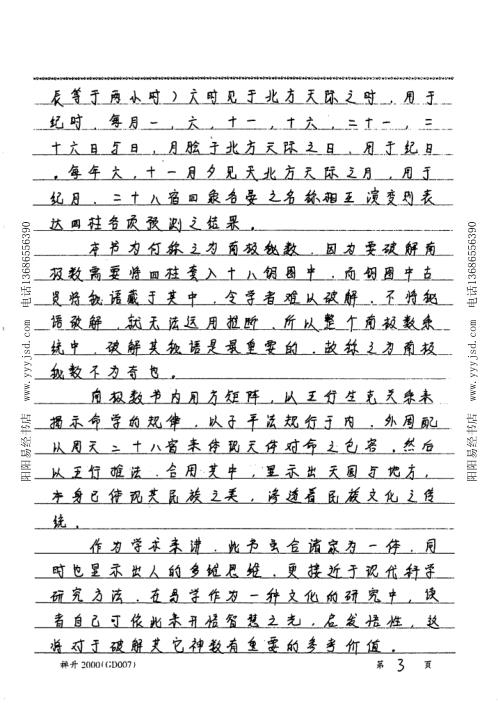 辰等于两小时）六时见于北方天际之时，用于
纪时，每月一，六，十一，十六，二十一，二
十六日与日，月胘于北方天际之日，用于纪日
。每年六，十一月夕见天北方天际之月，用于
纪月，二十八宿四象各曼之名称相互演变则表
达四柱各项预测之结果。
本书为何称之为南极秘数，因为要破解南
极数需要将四柱套入十八钥图中，而钥图中古
贤将秘语藏于其中，令学者难以破解，不将秘
语破解，就无法运用推断，所以整个南极数系
统中，破解其秘语是最重要的，故称之为南极
秘数不为奇也。
南极数书内用方矩阵，以五行生克关系来
揭示命学的规律，以子平法规行于内，外周配
以周天二十八宿来体现天体对命之包容。然后
以五行推法，合用其中，显示出天圆与地方，
本身已体现其民族之美，渗透着民族文化之传
统。
作为学术来讲，此书虽合诸家为一体，同
时也显示出人的多维思维，更接近于现代科学
研究方法，在易学作为一种文化的研究中，读
者自己可依此来开悟智慧之光，启发悟性，这
将对于破解其它神数有重要的参考价值。
禅升2000(GD007)
第 3 页
阳阳易经书店 www.yyyjsd.com 电话13686556390
阳阳易经书店 www.yyyjsd.com 电话13686556390